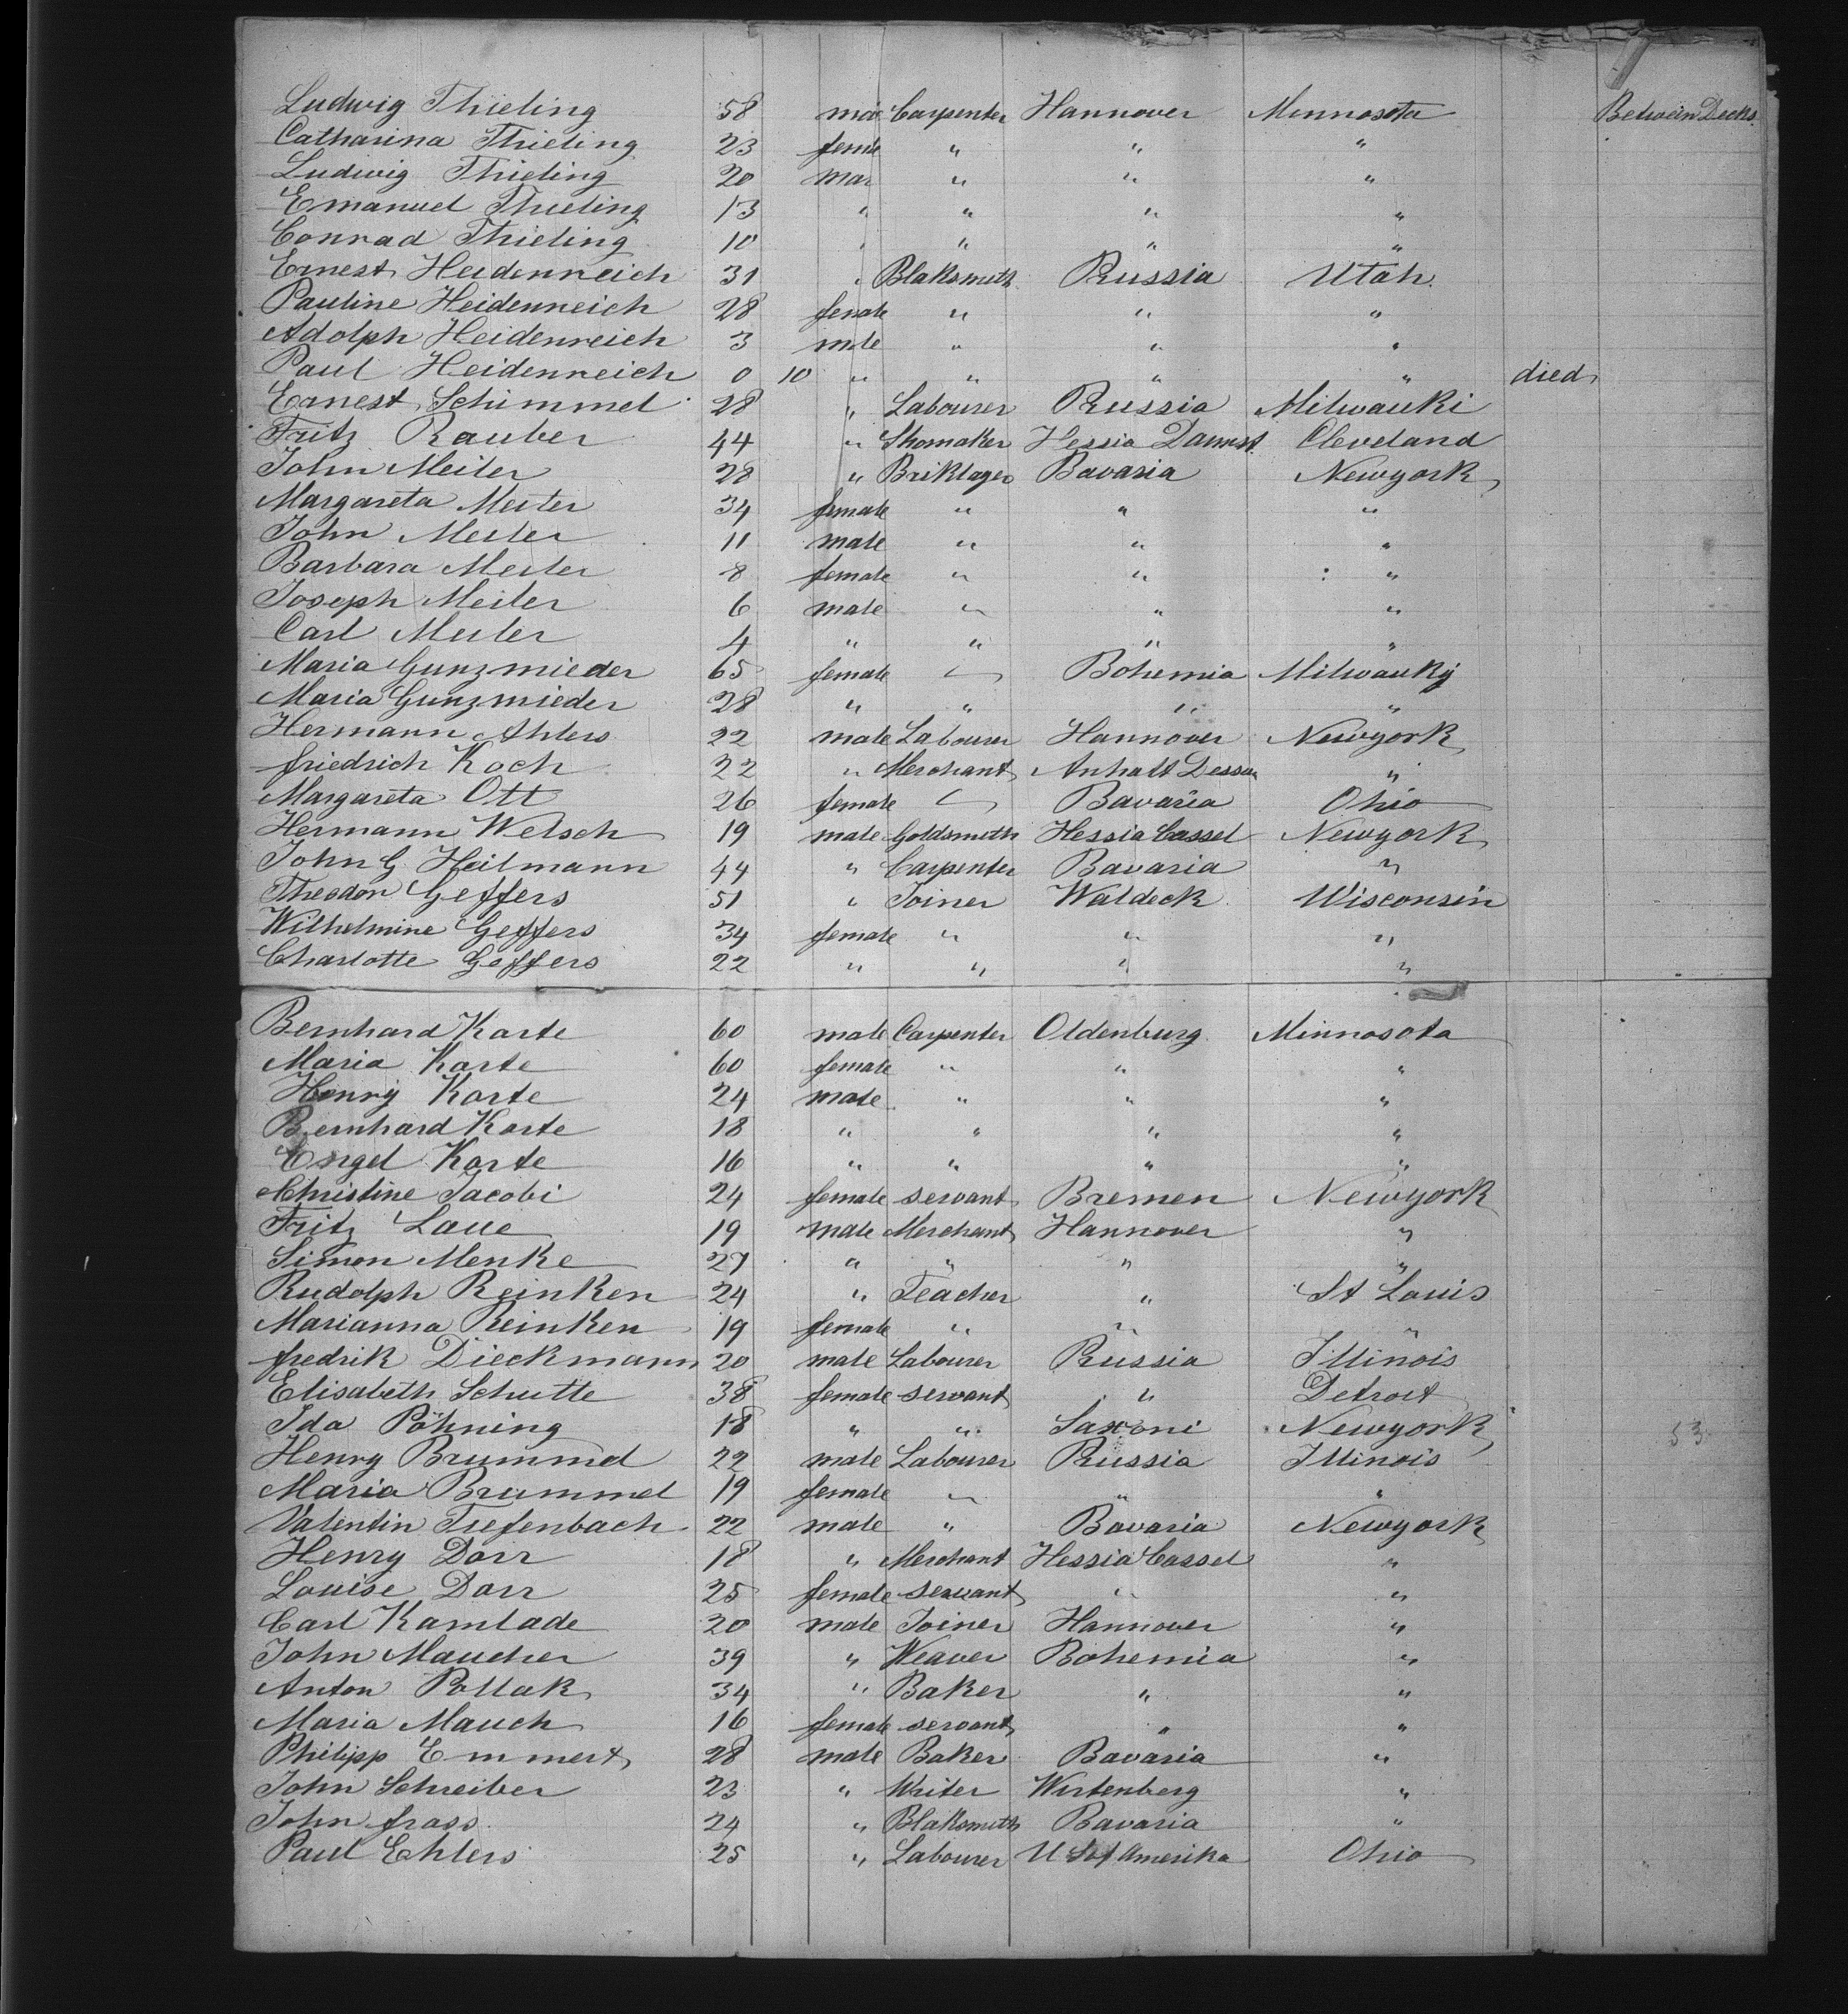 Ludwig Thieling 58 Carpenter Hannover Minnosota Between Decks
Catharina Thieling 23 femile " " "
Ludwig Thieling 20 " " "
Emanuel Thieling 13 " " " "
Conrad Thieling 10 " " " "
Ernest Heidenreich 31 " Blaksmith Prussia Utah.
Pauline Heidenreich 28 female " " "
Adolph Heidenreich 3 male " " "
Paul Heidenreich 0 10 " " " " died
Ernest Schimmel 28 " Labourer Prussia Milwauki
Fritz Rauber 44 " Shomaker Hessia Darmst. Cleveland
John Meiler 28 " Briklayer Bavaria Newyork
Margareta Meiler 34 female " " "
John Meiler 11 male " " "
Barbara Meiler 8 female " " "
Joseph Meiler 6 male " " "
Carl Meiler 4 " " " "
Maria Gunzmieder 65 female Bohemia Milwauky
Maria Gunzmieder 28 " " " "
Hermann Ahlers 22 male Labourer Hannover Newyork
friedrich Koch 22 " Merchant Anhalt Dessau "
Margareta Ott 26 female Bavaria Ohio
Hermann Welsch 19 male Goldsmith Hessia Cassel Newyork
John G Heilmann 44 " Carpenter Bavaria "
Theodor Geffers 51 " Joiner Waldeck Wisconsin
Wilhelmine Geffers 34 female " " "
Charlotte Geffers 22 " " " "
Bernhard Karte 60 male Carpenter Oldenburg Minnosota
Maria Karte 60 female " " "
Henry Karte 24 male " " "
Bernhard Karte 18 " " " "
Engel Karte 16 " " " "
Christine Jacobi 24 female servant Bremen Newyork
Fritz Laue 19 male Merchant Hannover "
Simon Menke 27 " " " "
Rudolph Reinken 24 " Teacher " St Louis
Marianna Reinken 19 female " " "
fredrik Dieckmann 20 male Labourer Prussia Illinois
Elisabeth Schutte 38 female servant " Detroit
Ida Pöhning 18 " " Saxoni Newyork 53
Henry Brummel 22 male Labourer Prussia Illinois
Maria Brummel 19 female " " "
Valentin Tiefenbach 22 male " Bavaria Newyork
Henry Dorr 18 " Merchant Hessia Cassel "
Louise Dorr 25 female servant " "
Carl Kamlade 20 male Joiner Hannover "
John Maucher 39 " Weaver Bohemia "
Anton Pollak 34 " Baker " "
Maria Mauch 16 female servant " "
Philipp Emmert 28 male Baker Bavaria "
John Schreiber 23 " Writer Wirtenberg "
John frass 24 " Blaksmith Bavaria "
Paul Ehlers 25 " Labourer U S of Amerika Ohio